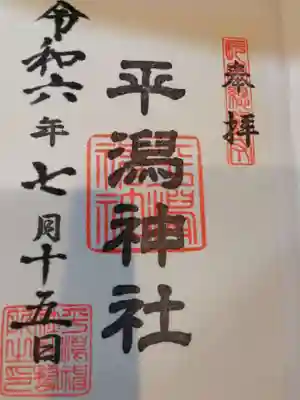 奉拝
平潟神社
令和六年七月十五日